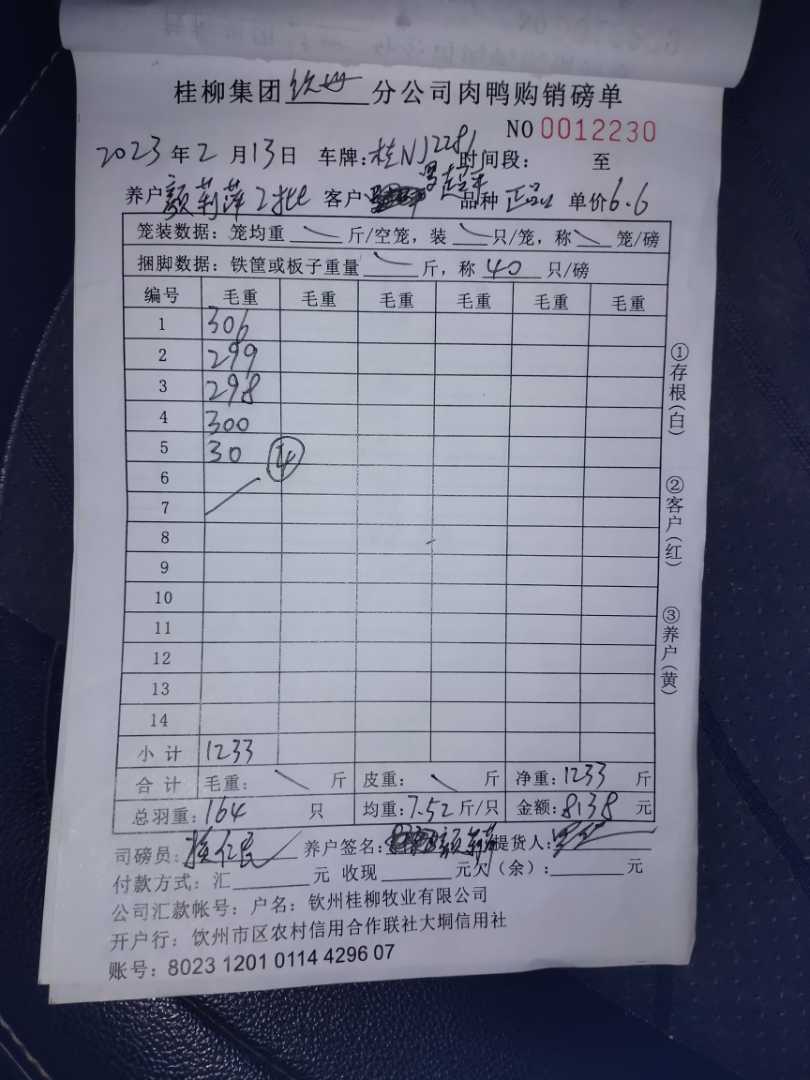 桂柳集团钦州分公司肉鸭购销磅单
NO 0012230
2023年2月13日 车牌:桂NJ2281 时间段: 至
养户颜莉萍2批 客户 品种正品 单价6.6
笼装数据: 笼均重 斤/空笼, 装 只/笼, 称 笼/磅
捆脚数据: 铁筐或板子重量 斤, 称 40 只/磅
编号 毛重 毛重 毛重 毛重 毛重 毛重
1 306
2 299
3 298
4 300
5 30 ④
6
7
8
9
10
11
12
13
14
小计 1233
合计 毛重: 斤 皮重: 斤 净重:1233 斤
总羽重:164 只 均重:7.52斤/只 金额:8138元
司磅员: 养户签名: 提货人:
付款方式: 汇 元 收现 元欠(余): 元
公司汇款帐号: 户名: 钦州桂柳牧业有限公司
开户行: 饮州市区农村信用合作联社大垌信用社
账号: 8023 1201 0114 4296 07
①存根(白)
②客户(红)
③养户(黄)